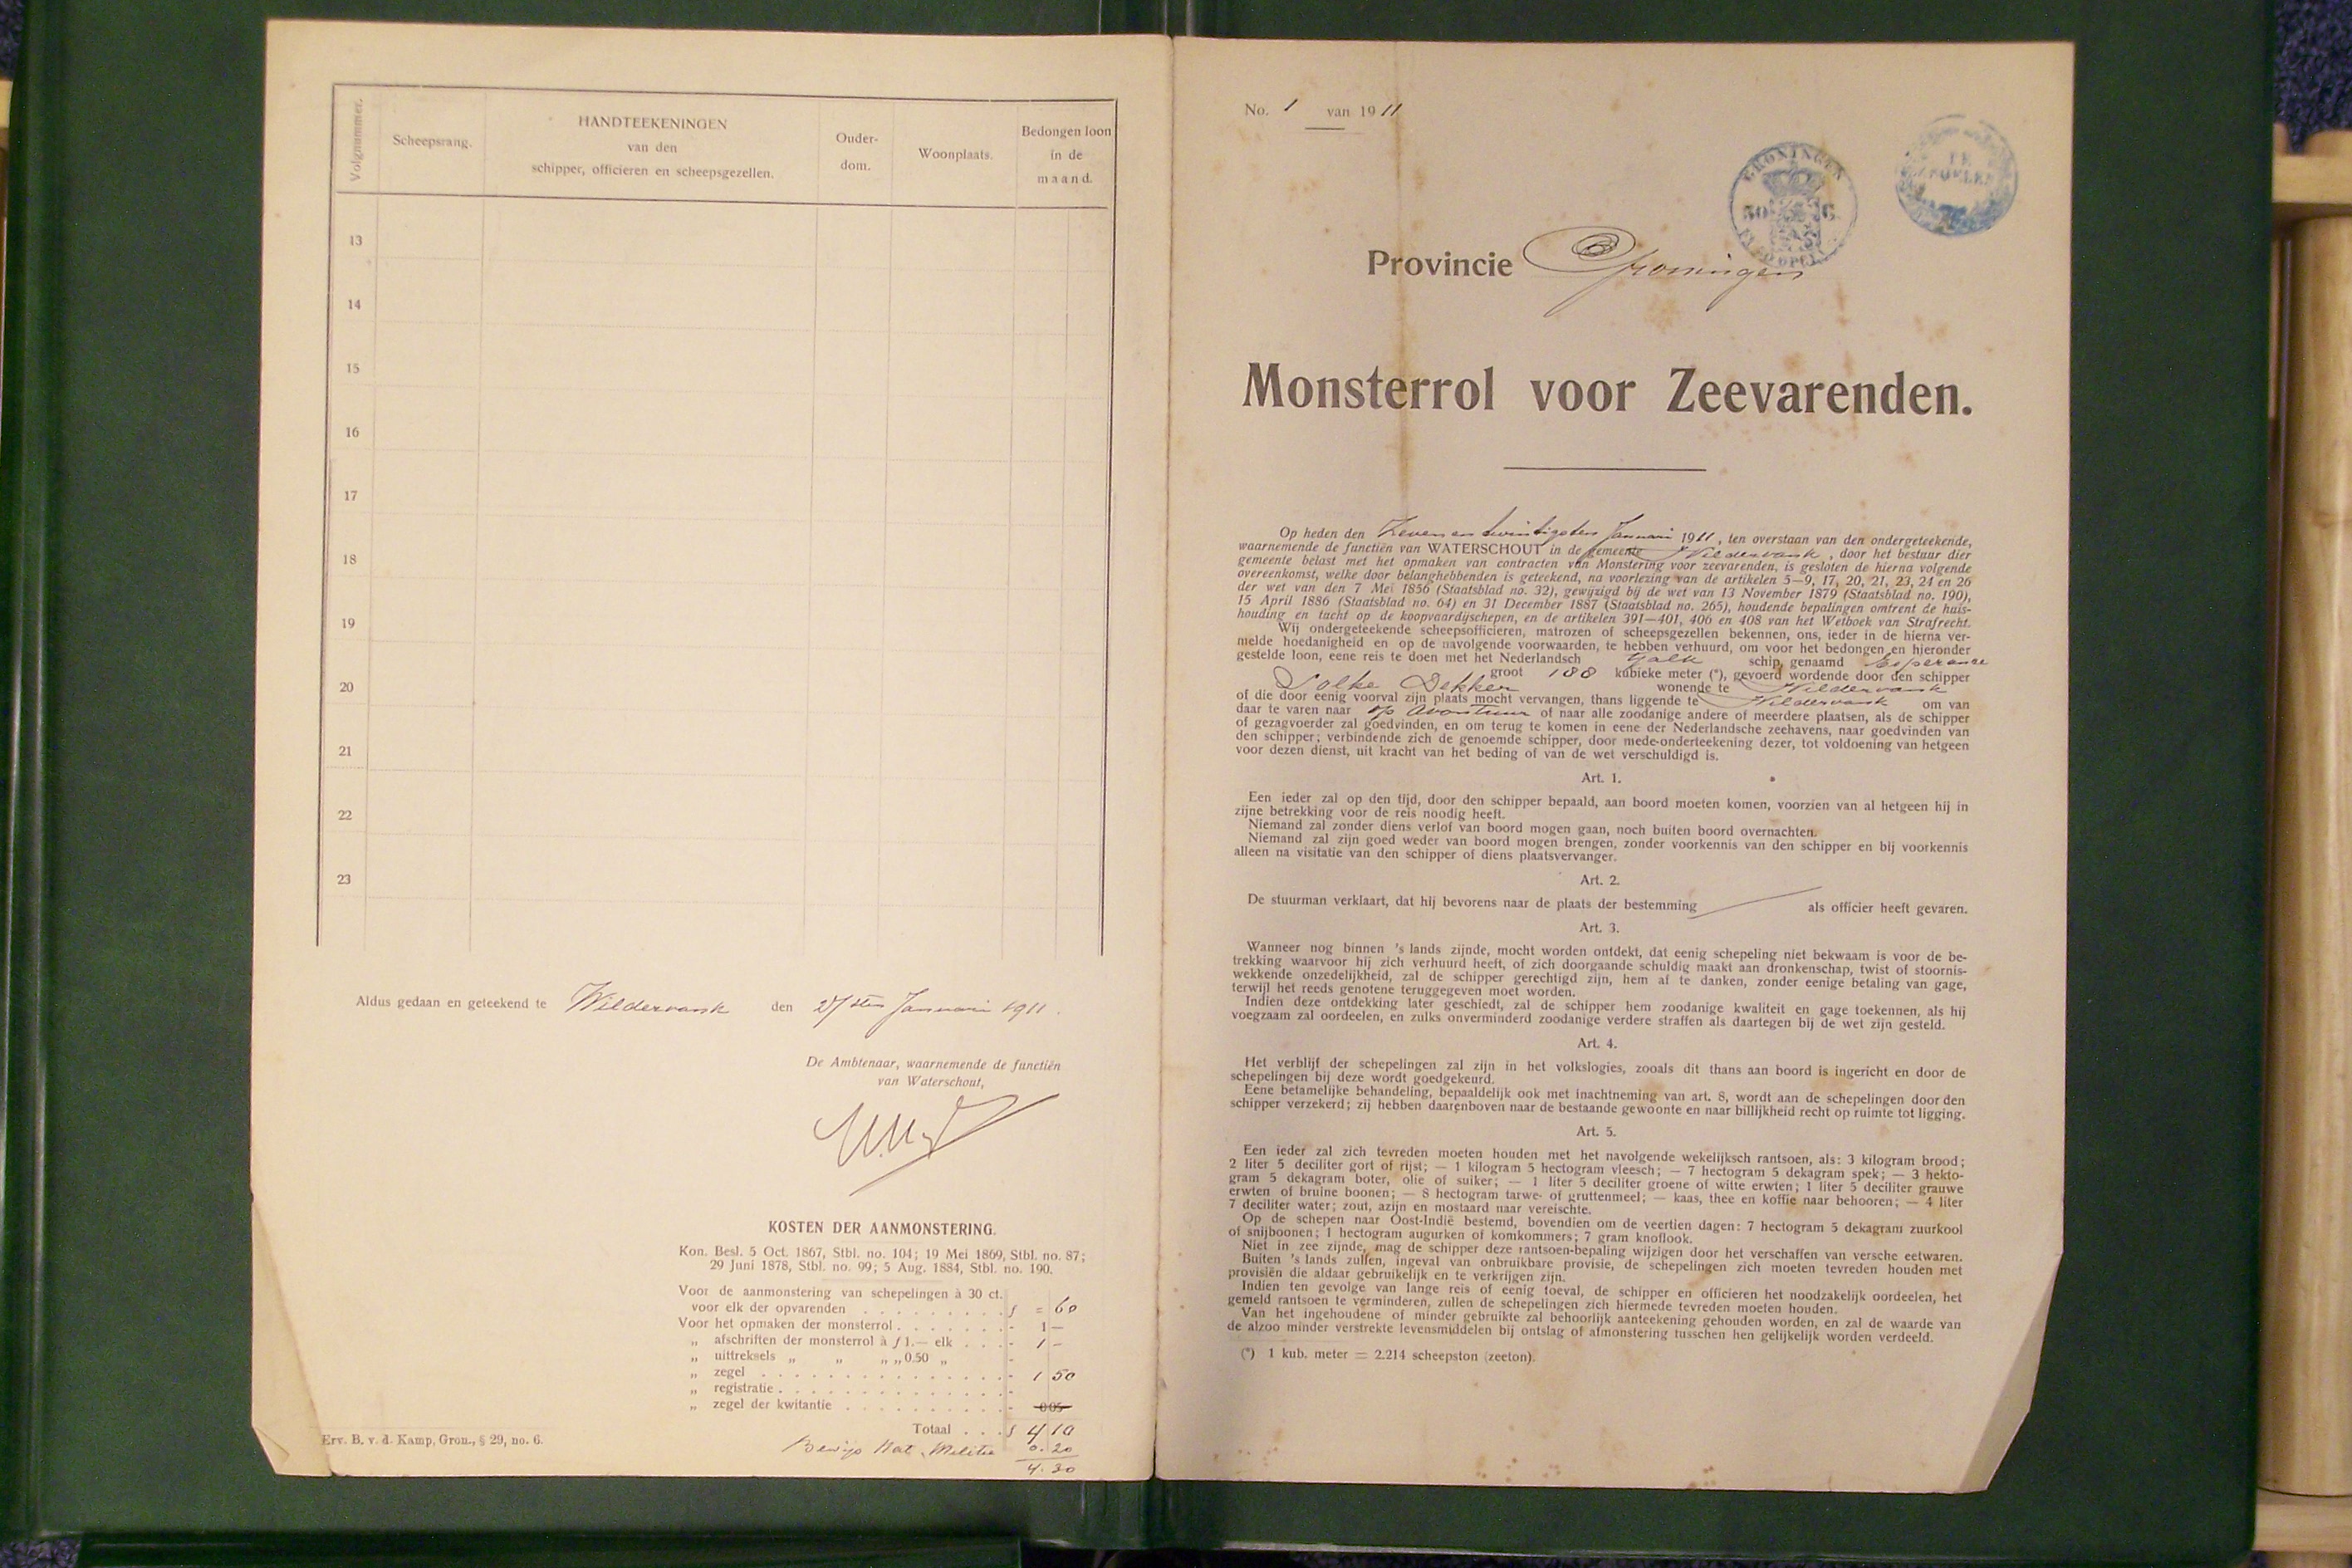 Volgnummer.
Scheepsrang.
HANDTEEKENINGEN
van den
schipper, officieren en scheepsgezellen.
Ouder-
dom.
Woonplaats.
Bedongen loon
in de
maand.
13
14
15
16
17
18
19
20
21
22
23
Aldus gedaan en geteekend te Wildervank den 27sten Januari 1911.
De Ambtenaar, waarnemende de functiën
van Waterschout,
KOSTEN DER AANMONSTERING.
Kon. Besl. 5 Oct. 1867, Stbl. no. 104; 19 Mei 1869, Stbl. no. 87;
29 Juni 1878, Stbl. no. 99; 5 Aug. 1884, Stbl. no. 190.
Voor de aanmonstering van schepelingen à 30 ct.
voor elk der opvarenden . . . . . . . . . f = 60
Voor het opmaken der monsterrol . . . . . . . - 1 —
„ afschriften der monsterrol à f 1.— elk . . . - 1 -
„ uittreksels „ „ „ „ 0.50 „ -
„ zegel . . . . . . . . . . . . . . . - 1 50
„ registratie . . . . . . . . . . . . . . -
„ zegel der kwitantie . . . . . . . . . . - 0 05
Totaal . . . f 4 10
Bewijs Nat. Militie 0.20
4.30
Erv. B. v. d. Kamp, Gron., § 29, no. 6.
No. 1 van 1911
GRONINGEN
50 C.
Provincie Groningen
Monsterrol voor Zeevarenden.
Op heden den Zevenentwintigsten Januari 1911, ten overstaan van den ondergeteekende,
waarnemende de functiën van WATERSCHOUT in de gemeente Wildervank, door het bestuur dier
gemeente belast met het opmaken van contracten van Monstering voor zeevarenden, is gesloten de hierna volgende
overeenkomst, welke door belanghebbenden is geteekend, na voorlezing van de artikelen 5—9, 17, 20, 21, 23, 24 en 26
der wet van den 7 Mei 1856 (Staatsblad no. 32), gewijzigd bij de wet van 13 November 1879 (Staatsblad no. 190),
15 April 1886 (Staatsblad no. 64) en 31 December 1887 (Staatsblad no. 265), houdende bepalingen omtrent de huis-
houding en tucht op de koopvaardijschepen, en de artikelen 391—401, 406 en 408 van het Wetboek van Strafrecht.
Wij ondergeteekende scheepsofficieren, matrozen of scheepsgezellen bekennen, ons, ieder in de hierna ver-
melde hoedanigheid en op de navolgende voorwaarden, te hebben verhuurd, om voor het bedongen en hieronder
gestelde loon, eene reis te doen met het Nederlandsch Galk schip, genaamd Esperance
groot 188 kubieke meter (*), gevoerd wordende door den schipper
Dekker wonende te Wildervank
of die door eenig voorval zijn plaats mocht vervangen, thans liggende te Wildervank om van
daar te varen naar op avontuur of naar alle zoodanige andere of meerdere plaatsen, als de schipper
of gezagvoerder zal goedvinden, en om terug te komen in eene der Nederlandsche zeehavens, naar goedvinden van
den schipper; verbindende zich de genoemde schipper, door mede-onderteekening dezer, tot voldoening van hetgeen
voor dezen dienst, uit kracht van het beding of van de wet verschuldigd is.
Art. 1.
Een ieder zal op den tijd, door den schipper bepaald, aan boord moeten komen, voorzien van al hetgeen hij in
zijne betrekking voor de reis noodig heeft.
Niemand zal zonder diens verlof van boord mogen gaan, noch buiten boord overnachten.
Niemand zal zijn goed weder van boord mogen brengen, zonder voorkennis van den schipper en bij voorkennis
alleen na visitatie van den schipper of diens plaatsvervanger.
Art. 2.
De stuurman verklaart, dat hij bevorens naar de plaats der bestemming als officier heeft gevaren.
Art. 3.
Wanneer nog binnen 's lands zijnde, mocht worden ontdekt, dat eenig schepeling niet bekwaam is voor de be-
trekking waarvoor hij zich verhuurd heeft, of zich doorgaande schuldig maakt aan dronkenschap, twist of stoornis-
wekkende onzedelijkheid, zal de schipper gerechtigd zijn, hem af te danken, zonder eenige betaling van gage,
terwijl het reeds genotene teruggegeven moet worden.
Indien deze ontdekking later geschiedt, zal de schipper hem zoodanige kwaliteit en gage toekennen, als hij
voegzaam zal oordeelen, en zulks onverminderd zoodanige verdere straffen als daartegen bij de wet zijn gesteld.
Art. 4.
Het verblijf der schepelingen zal zijn in het volkslogies, zooals dit thans aan boord is ingericht en door de
schepelingen bij deze wordt goedgekeurd.
Eene betamelijke behandeling, bepaaldelijk ook met inachtneming van art. 8, wordt aan de schepelingen door den
schipper verzekerd; zij hebben daarenboven naar de bestaande gewoonte en naar billijkheid recht op ruimte tot ligging.
Art. 5.
Een ieder zal zich tevreden moeten houden met het navolgende wekelijksch rantsoen, als: 3 kilogram brood;
2 liter 5 deciliter gort of rijst; — 1 kilogram 5 hectogram vleesch; — 7 hectogram 5 dekagram spek; — 3 hekto-
gram 5 dekagram boter, olie of suiker; — 1 liter 5 deciliter groene of witte erwten; 1 liter 5 deciliter grauwe
erwten of bruine boonen; — 8 hectogram tarwe- of gruttenmeel; — kaas, thee en koffie naar behooren; — 4 liter
7 deciliter water; zout, azijn en mostaard naar vereischte.
Op de schepen naar Oost-Indië bestemd, bovendien om de veertien dagen: 7 hectogram 5 dekagram zuurkool
of snijboonen; 1 hectogram augurken of komkommers; 7 gram knoflook.
Niet in zee zijnde, mag de schipper deze rantsoen-bepaling wijzigen door het verschaffen van versche eetwaren.
Buiten 's lands zullen, ingeval van onbruikbare provisie, de schepelingen zich moeten tevreden houden met
provisiën die aldaar gebruikelijk en te verkrijgen zijn.
Indien ten gevolge van lange reis of eenig toeval, de schipper en officieren het noodzakelijk oordeelen, het
gemeld rantsoen te verminderen, zullen de schepelingen zich hiermede tevreden moeten houden.
Van het ingehoudene of minder gebruikte zal behoorlijk aanteekening gehouden worden, en zal de waarde van
de alzoo minder verstrekte levensmiddelen bij ontslag of afmonstering tusschen hen gelijkelijk worden verdeeld.
(*) 1 kub. meter = 2.214 scheepston (zeeton).